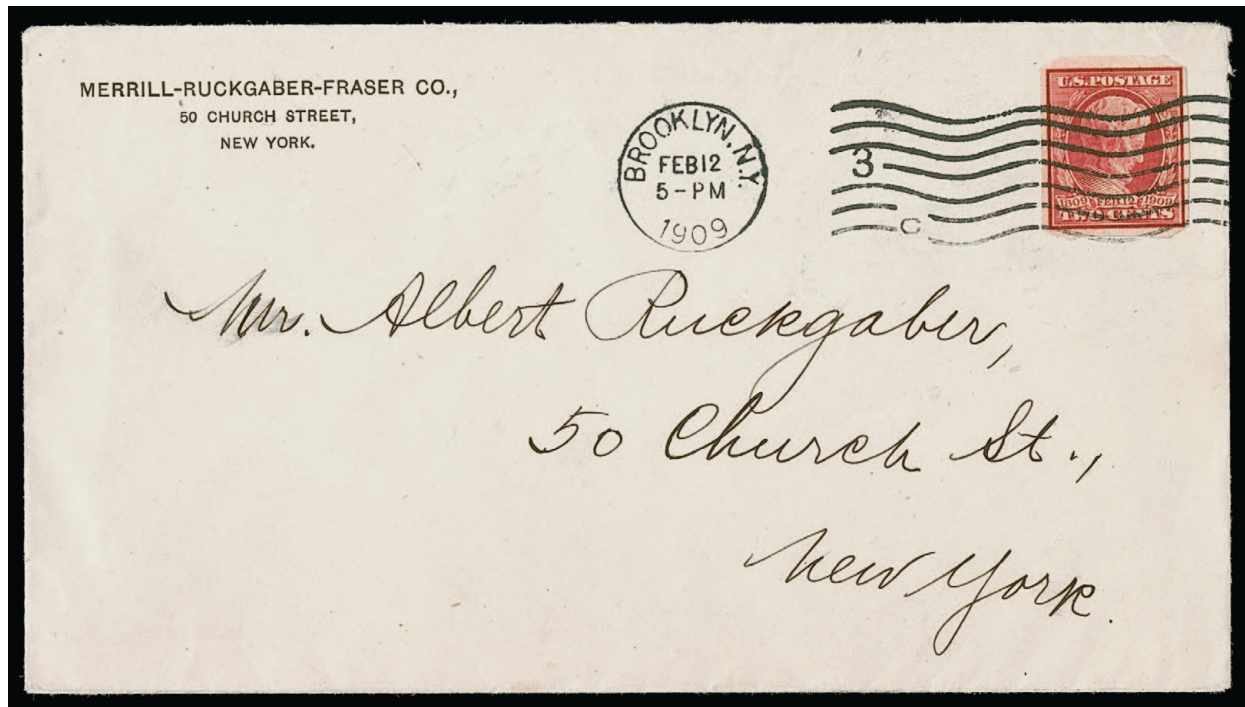 MERRILL-RUCKGABER-FRASER CO.,
50 CHURCH STREET,
NEW YORK.
BROOKLYN, N.Y.
FEB 12
5-PM
1909
3
C
U.S. POSTAGE
1809 FEB 12 1909
TWO CENTS
Mr. Albert Ruckgaber,
50 Church St.,
New York.